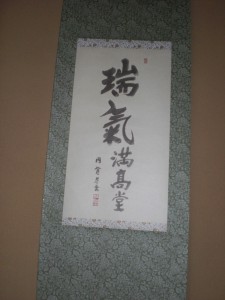 瑞氣満高堂